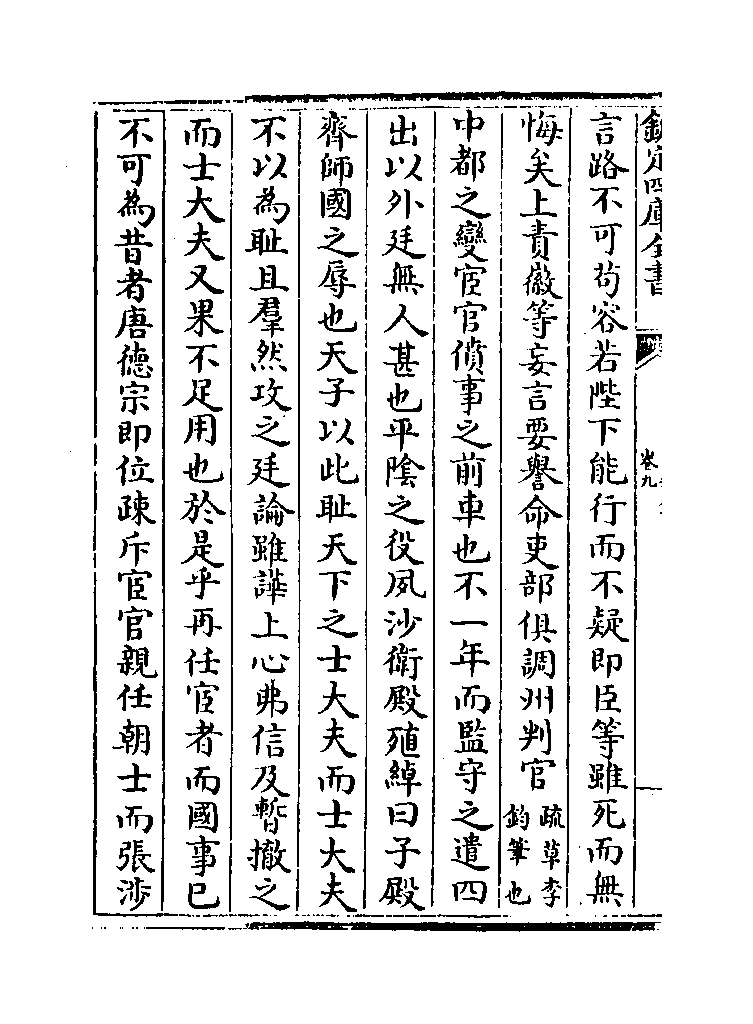 欽定四庫全書
卷九
言路不可苟容若陛下能行而不疑即臣等雖死而無
悔矣上責徽等妄言要譽命吏部俱調州判官疏草李鈞筆也
中都之變宦官僨事之前車也不一年而監守之遣四
出以外廷無人甚也平陰之役夙沙衛殿殖綽曰子殿
齊師國之辱也天子以此耻天下之士大夫而士大夫
不以為耻且羣然攻之廷論雖譁上心弗信及暫撤之
而士大夫又果不足用也於是乎再任宦者而國事已
不可為昔者唐德宗即位疎斥宦官親任朝士而張涉